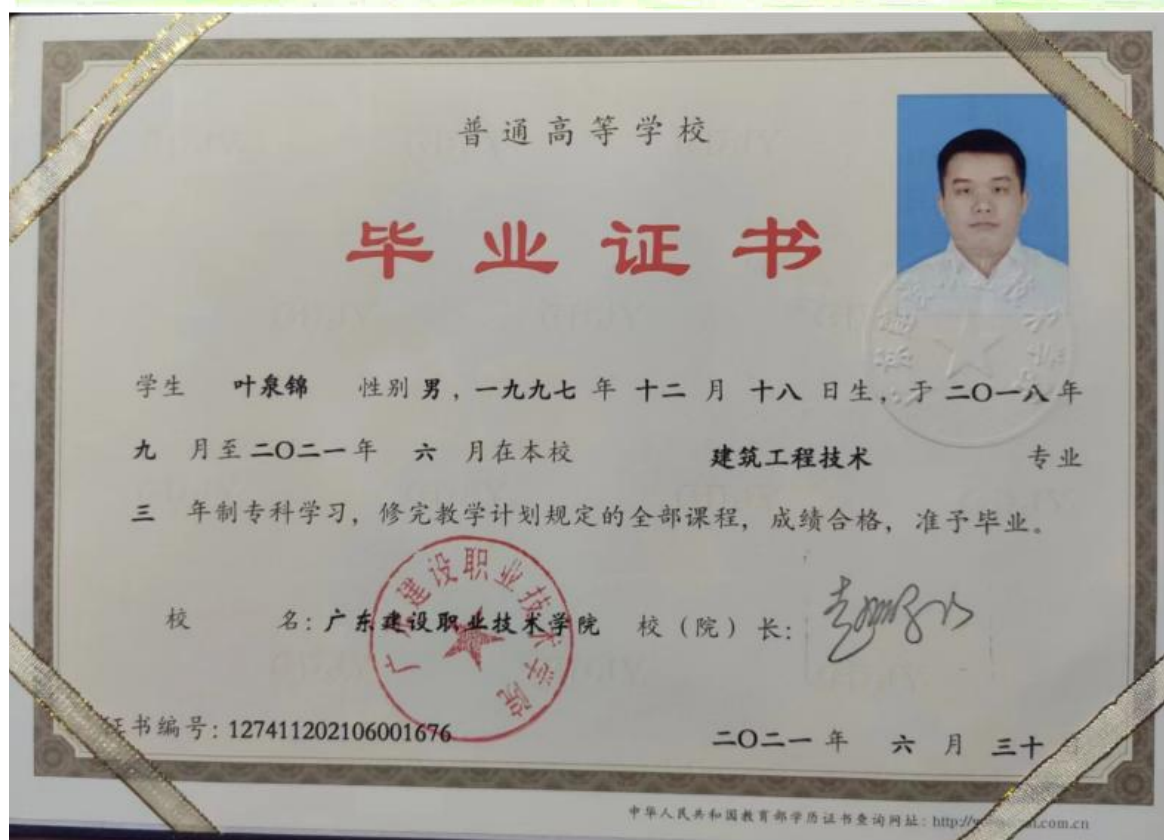 普通高等学校
毕业证书
学生 叶泉锦 性别 男，一九九七 年 十二 月 十八 日生，于 二〇一八 年
九 月至 二〇二一 年 六 月在本校 建筑工程技术 专业
三 年制专科学习，修完教学计划规定的全部课程，成绩合格，准予毕业。
校 名：广东建设职业技术学院 校（院）长：
广东建设职业技术学院
证书编号：127411202106001676
二〇二一 年 六 月 三十
中华人民共和国教育部学历证书查询网址：http://
.com.cn